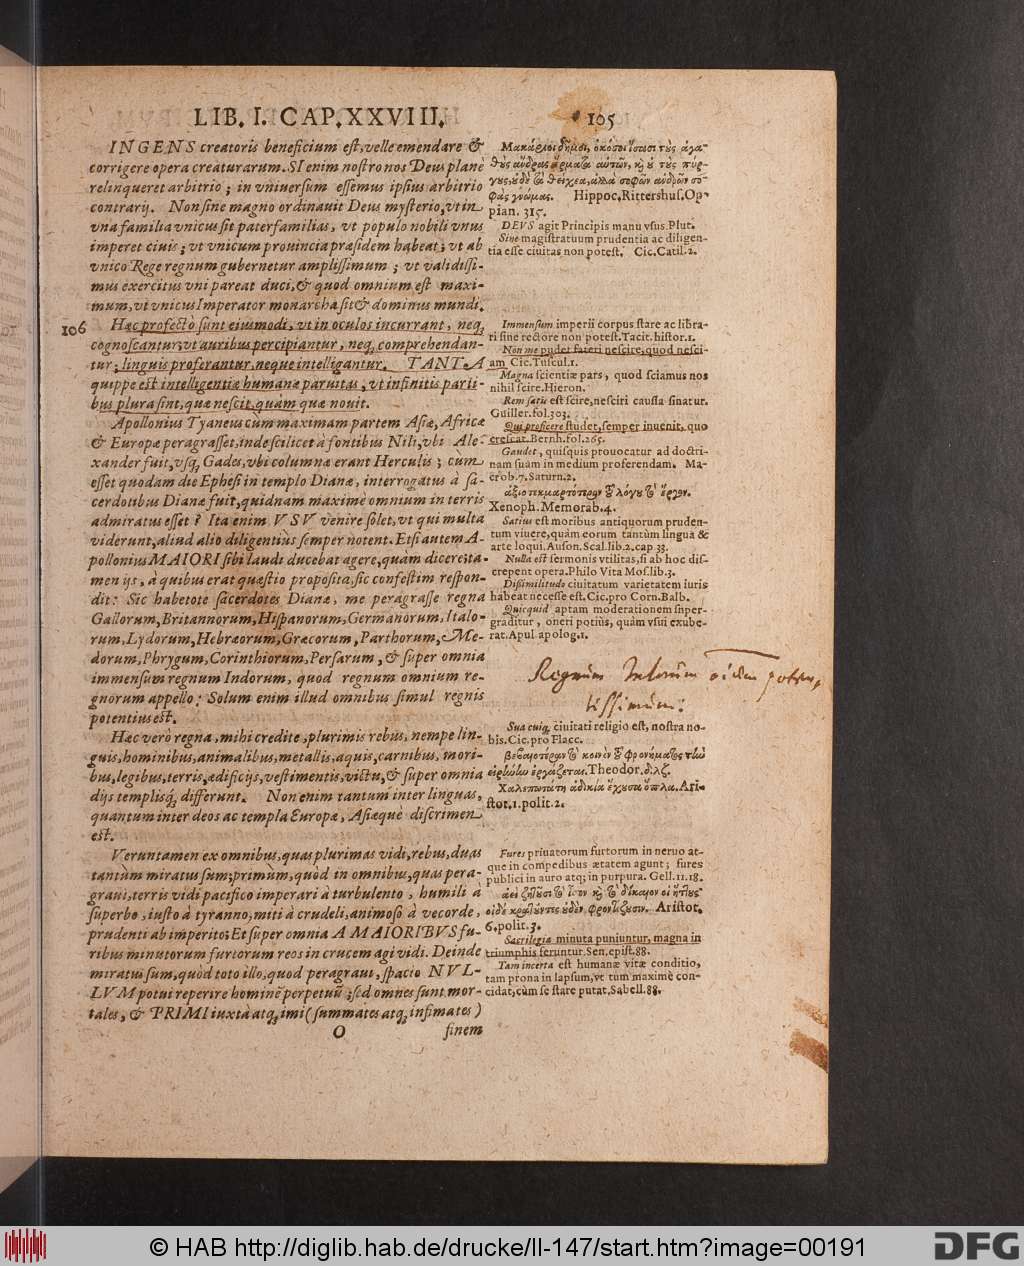 LIB. I. CAP. XXVIII.
105
INGENS creatoris beneficium est, velle emendare &
corrigere opera creaturarum. SI enim nostro nos Deus planè
relinqueret arbitrio; in vniuersum essemus ipsius arbitrio
contrarij. Non sine magno ordinauit Deus mysterio, vt in
vna familia vnicus sit paterfamilias, vt populo nobili vnus
imperet ciuis; vt vnicum prouincia præsidem habeat; vt ab
vnico Rege regnum gubernetur amplissimum; vt validissi-
mus exercitus vni pareat duci, & quod omnium est maxi-
mum, vt vnicus Imperator monarcha sit & dominus mundi.
106
Hæc profectò sunt eiusmodi, vt in oculos incurrant, neq;
cognoscantur; vt auribus percipiantur, neq; comprehendan-
tur; linguis proferantur, neque intelligantur. TANTA
quippe est intelligentiæ humanæ paruitas, vt infinitis parti-
bus plura sint, quæ nescit, quàm quæ nouit.
Apollonius Tyaneus cùm maximam partem Asiæ, Africæ
& Europæ peragrasset, inde scilicet à fontibus Nili, vbi Ale-
xander fuit, vsq; Gades, vbi columnæ erant Herculis; cùm
esset quodam die Ephesi in templo Dianæ, interrogatus à sa-
cerdotibus Dianæ fuit, quidnam maximè omnium in terris
admiratus esset? Ita enim VSV venire solet, vt qui multa
viderunt, aliud alio diligentiùs semper notent. Etsi autem A-
pollonius MAIORI sibi laudi ducebat agere, quàm dicere: ta-
men ijs, à quibus erat quæstio proposita, sic confestim respon-
dit: Sic habetote sacerdotes Dianæ, me peragrasse regna
Gallorum, Britannorum, Hispanorum, Germanorum, Italo-
rum, Lydorum, Hebræorum, Græcorum, Parthorum, Me-
dorum, Phrygum, Corinthiorum, Persarum, & super omnia
immensum regnum Indorum, quod regnum omnium re-
gnorum appello: Solum enim illud omnibus simul regnis
potentius est.
Hæc verò regna, mihi credite, plurimis rebus, nempe lin-
guis, hominibus, animalibus, metallis, aquis, carnibus, mori-
bus, legibus, terris, ædificijs, vestimentis, victu, & super omnia
dijs templisq; differunt. Non enim tantum inter linguas,
quantum inter deos ac templa Europæ, Asiæquè discrimen
est.
Veruntamen ex omnibus, quas plurimas vidi, rebus, duas
tantùm miratus sum; primùm, quòd in omnibus, quas pera-
graui, terris vidi pacifico imperari à turbulento, humili à
superbo, iusto à tyranno, miti à crudeli, animoso à vecorde,
prudenti ab imperito; Et super omnia A MAIORIBVS fu-
ribus minutorum furtorum reos in crucem agi vidi. Deinde
miratus sum, quòd toto illo, quod peragraui, spacio NVL-
LVM potui reperire hominẽ perpetuũ; sed omnes sunt mor-
tales, & PRIMI iuxtà atq; imi (summates atq; infimates)
O
finem
Μακάριοι δῆμοι, ὁκόσοι ἴσασι τὺς ἀγα-
θὺς ἄνδρας ἕρματα αὑτῶν, καὶ ȣ̓ τὺς πύρ-
γυς, ȣ̓δὲ τὰ τείχεα, ἀλλὰ σοφῶν ἀνδρῶν σο-
φὰς γνώμας. Hippoc. Rittershus. Op-
pian. 315.
DEVS agit Principis manu vsus. Plut.
Sine magistratuum prudentia ac diligen-
tia esse ciuitas non potest. Cic. Catil. 2.
Immensum imperii corpus stare ac libra-
ri sine rectore non potest. Tacit. histor. 1.
Non me pudet fateri nescire, quod nesci-
am Cic. Tuscul. 1.
Magna scientiæ pars, quod sciamus nos
nihil scire. Hieron.
Rem satis est scire, nesciri caussa sinatur.
Guiller. fol. 303.
Qui proficere studet, semper inuenit, quo
crescat. Bernh. fol. 265.
Gaudet, quisquis prouocatur ad doctri-
nam suam in medium proferendam. Ma-
crob. 7. Saturn. 2.
ἀξιοτεκμαρτότερον τȣ͂ λόγȣ τὸ ἔργον.
Xenoph. Memorab. 4.
Satius est moribus antiquorum pruden-
tum viuere, quàm eorum tantùm lingua &
arte loqui. Auson. Scal. lib. 2. cap 33.
Nulla est sermonis vtilitas, si ab hoc dis-
crepent opera. Philo Vita Mos. lib. 3.
Dissimilitudo ciuitatum varietatem iuris
habeat necesse est. Cic. pro Corn. Balb.
Quicquid aptam moderationem super-
graditur, oneri potiùs, quàm vsui exube-
rat. Apul apolog. 1.
Regnum Indorum
tissimum.
Sua cuiq; ciuitati religio est, nostra no-
bis. Cic. pro Flacc.
βεβαιότερον τὸ κοινὸν τȣ͂ φρονήματος τὴν
εἰρήνην ἐργάζεται. Theodor. διλζ.
Χαλεπωτάτη ἀδικία ἔχȣσα ὅπλα. Ari-
stot. 1. polit. 2.
Fures priuatorum furtorum in neruo at-
que in compedibus ætatem agunt; fures
publici in auro atq; in purpura. Gell. 11. 18.
ἀεὶ ζητȣ͂σι τὸ ἴσον καὶ τὸ δίκαιον οἱ ἥττȣς
οἱ δὲ κρατȣ͂ντες ȣ̓δὲν φροντίζȣσιν. Aristot.
6. polit. 3.
Sacrilegia minuta puniuntur, magna in
triumphis feruntur. Sen. epist. 88.
Tam incerta est humanæ vitæ conditio,
tam prona in lapsum, vt tum maximè con-
cidat, cùm se stare putat. Sabell. 88.
© HAB http://diglib.hab.de/drucke/ll-147/start.htm?image=00191
DFG